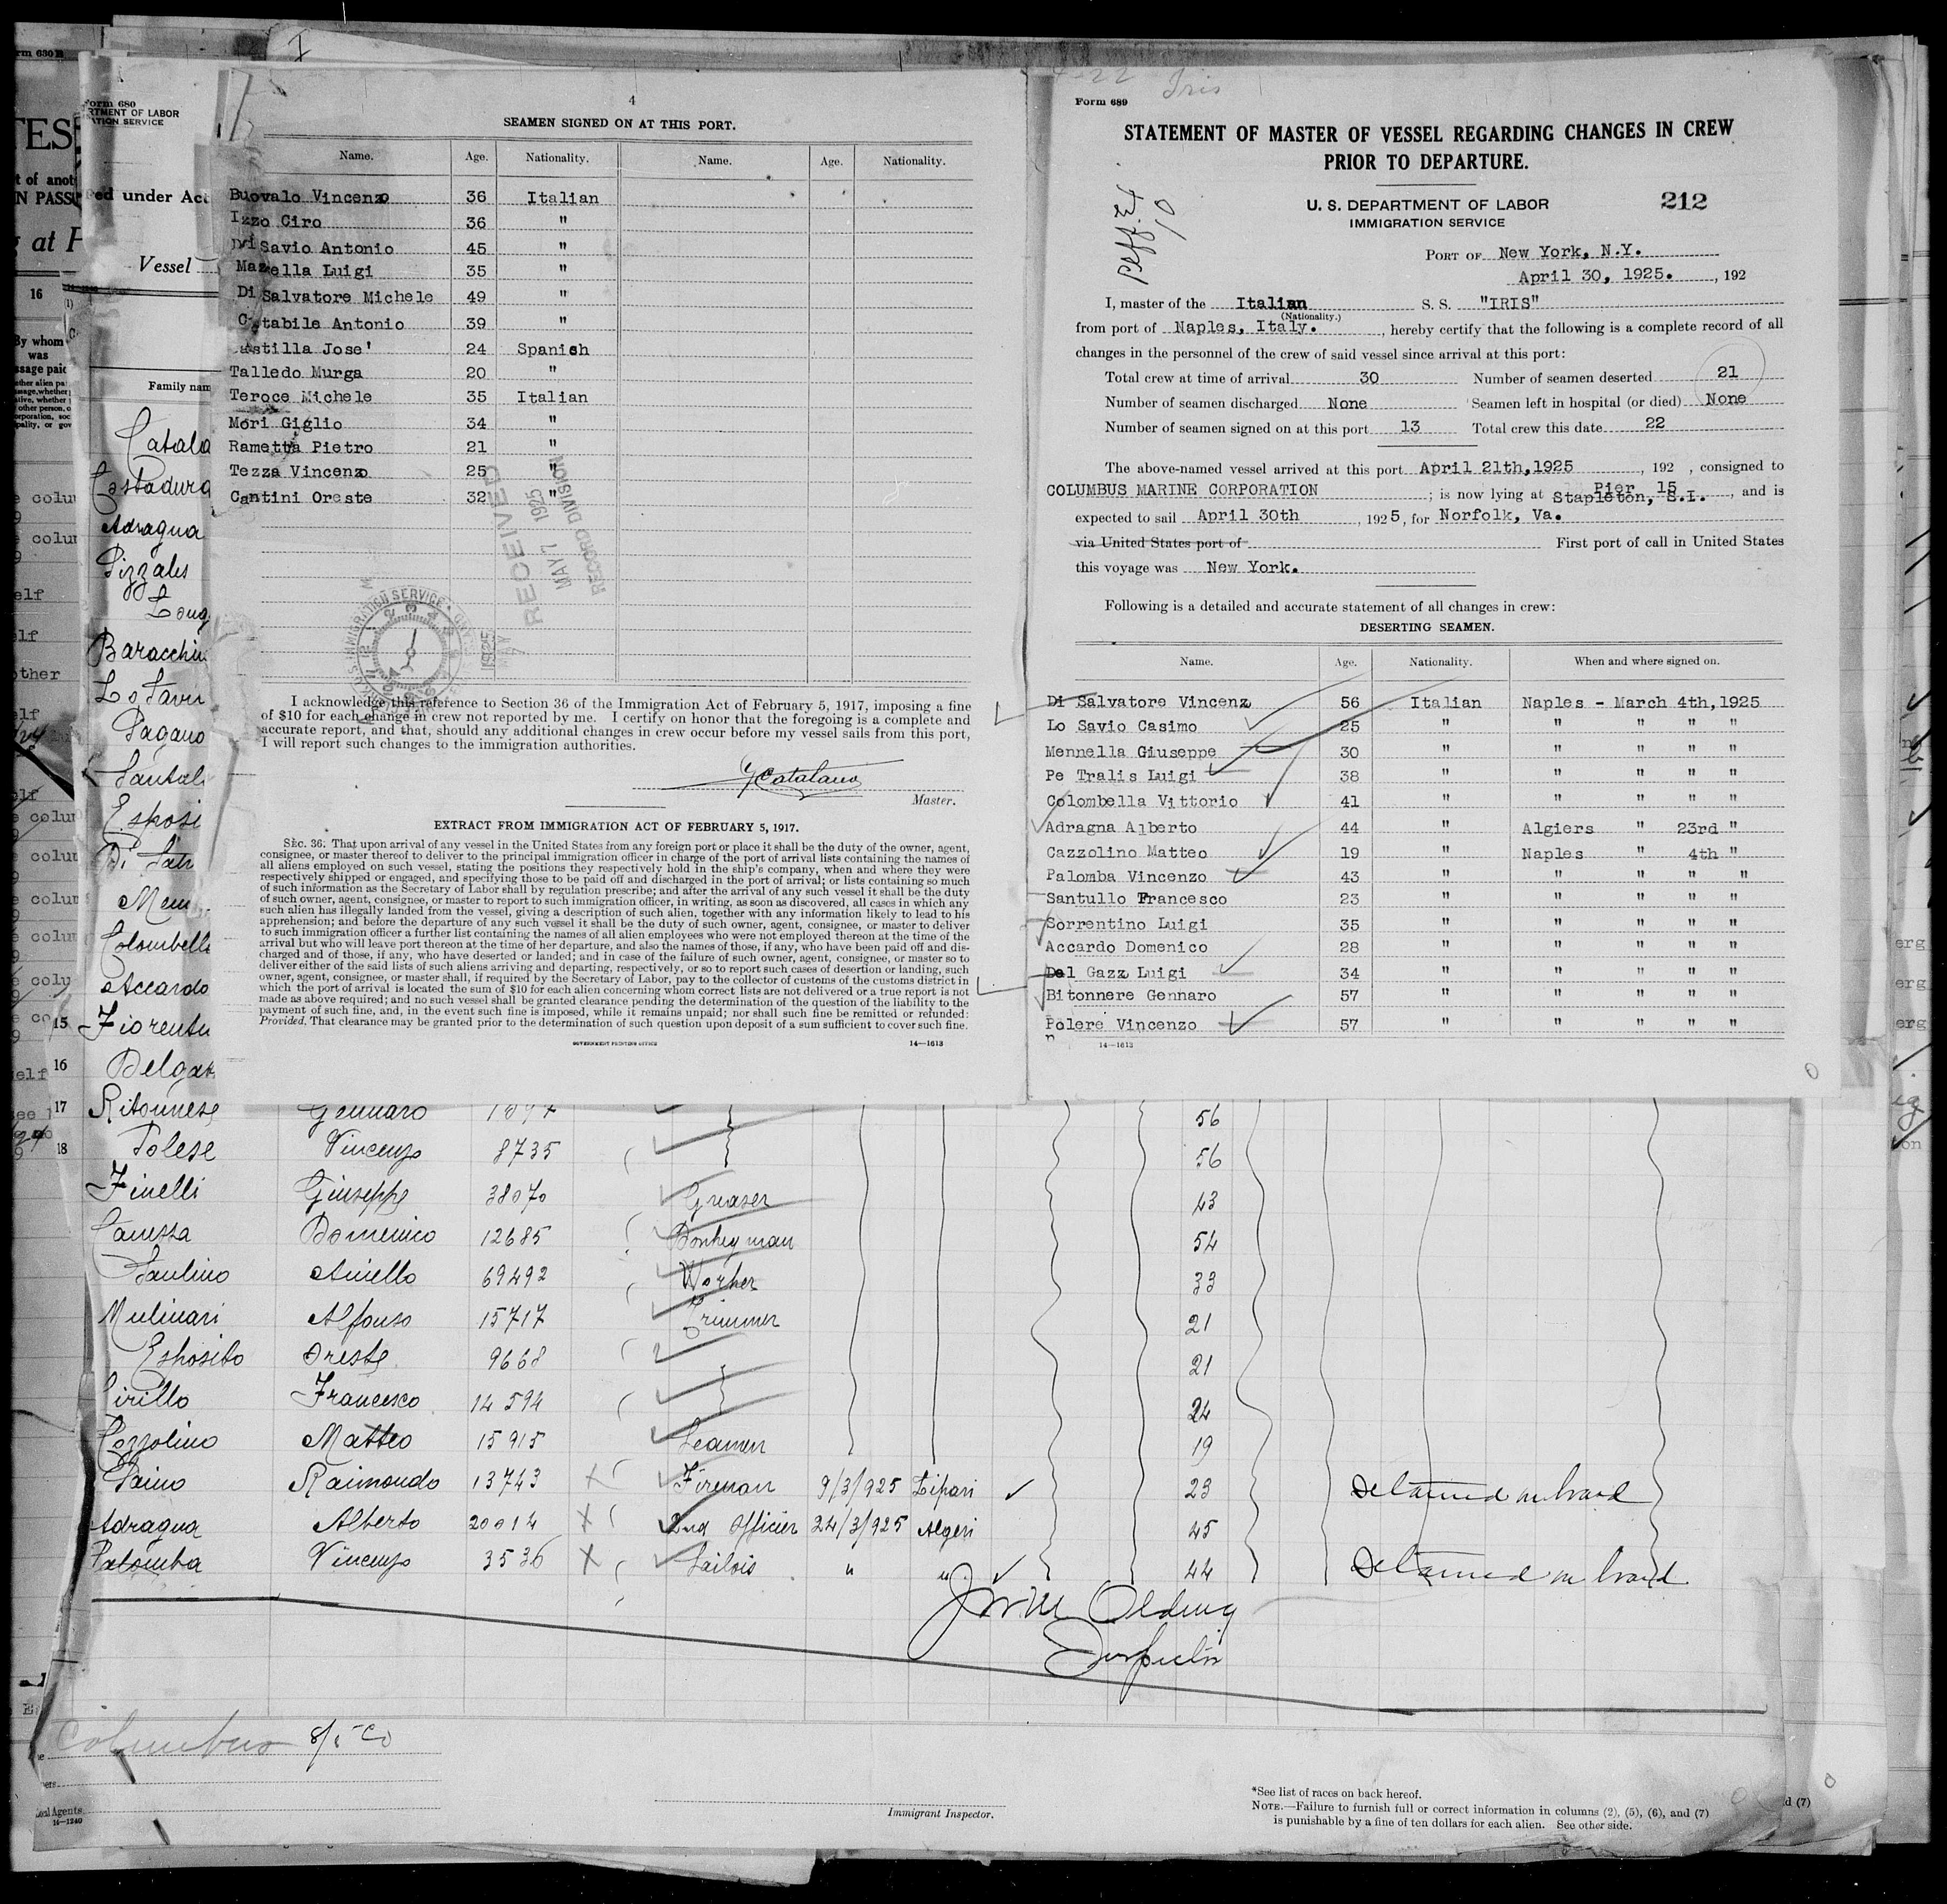 4
SEAMEN SIGNED ON AT THIS PORT.
Name. Age. Nationality. Name. Age. Nationality.
Buovalo Vincenzo 36 Italian
Izzo Ciro 36 "
Di Savio Antonio 45 "
Mazella Luigi 35 "
Di Salvatore Michele 49 "
tabile Antonio 39 "
astilla Jose' 24 Spanish
Talledo Murga 20 "
Teroce Michele 35 Italian
Mori Giglio 34 "
Rametta Pietro 21 "
Tezza Vincenzo 25 "
Cantini Oreste 32 "
RECEIVED
MAY 7 1925
RECORD DIVISION
I acknowledge this reference to Section 36 of the Immigration Act of February 5, 1917, imposing a fine
of $10 for each change in crew not reported by me. I certify on honor that the foregoing is a complete and
accurate report, and that, should any additional changes in crew occur before my vessel sails from this port,
I will report such changes to the immigration authorities.
Catalano
Master.
EXTRACT FROM IMMIGRATION ACT OF FEBRUARY 5, 1917.
SEC. 36. That upon arrival of any vessel in the United States from any foreign port or place it shall be the duty of the owner, agent,
consignee, or master thereof to deliver to the principal immigration officer in charge of the port of arrival lists containing the names of
all aliens employed on such vessel, stating the positions they respectively hold in the ship's company, when and where they were
respectively shipped or engaged, and specifying those to be paid off and discharged in the port of arrival; or lists containing so much
of such information as the Secretary of Labor shall by regulation prescribe; and after the arrival of any such vessel it shall be the duty
of such owner, agent, consignee, or master to report to such immigration officer, in writing, as soon as discovered, all cases in which any
such alien has illegally landed from the vessel, giving a description of such alien, together with any information likely to lead to his
apprehension; and before the departure of any such vessel it shall be the duty of such owner, agent, consignee, or master to deliver
to such immigration officer a further list containing the names of all alien employees who were not employed thereon at the time of the
arrival but who will leave port thereon at the time of her departure, and also the names of those, if any, who have been paid off and dis-
charged and of those, if any, who have deserted or landed; and in case of the failure of such owner, agent, consignee, or master so to
deliver either of the said lists of such aliens arriving and departing, respectively, or so to report such cases of desertion or landing, such
owner, agent, consignee, or master, shall, if required by the Secretary of Labor, pay to the collector of customs of the customs district in
which the port of arrival is located the sum of $10 for each alien concerning whom correct lists are not delivered or a true report is not
made as above required; and no such vessel shall be granted clearance pending the determination of the question of the liability to the
payment of such fine, and, in the event such fine is imposed, while it remains unpaid; nor shall such fine be remitted or refunded:
Provided, That clearance may be granted prior to the determination of such question upon deposit of a sum sufficient to cover such fine.
GOVERNMENT PRINTING OFFICE 14—1613
Iris
Form 689
STATEMENT OF MASTER OF VESSEL REGARDING CHANGES IN CREW
PRIOR TO DEPARTURE.
U. S. DEPARTMENT OF LABOR
IMMIGRATION SERVICE
212
PORT OF New York, N.Y.
April 30, 1925. , 192
I, master of the Italian S. S. "IRIS"
(Nationality.)
from port of Naples, Italy. , hereby certify that the following is a complete record of all
changes in the personnel of the crew of said vessel since arrival at this port:
Total crew at time of arrival 30 Number of seamen deserted 21
Number of seamen discharged None Seamen left in hospital (or died) None
Number of seamen signed on at this port 13 Total crew this date 22
The above-named vessel arrived at this port April 21th,1925 , 192 , consigned to
COLUMBUS MARINE CORPORATION ; is now lying at Pier 15 Stapleton, S.I. , and is
expected to sail April 30th , 1925, for Norfolk, Va.
via United States port of First port of call in United States
this voyage was New York.
Following is a detailed and accurate statement of all changes in crew:
DESERTING SEAMEN.
Name. Age. Nationality. When and where signed on.
Di Salvatore Vincenz 56 Italian Naples - March 4th,1925
Lo Savio Casimo 25 " " " " "
Mennella Giuseppe 30 " " " " "
Pe Tralis Luigi 38 " " " " "
Colombella Vittorio 41 " " " " "
Adragna Alberto 44 " Algiers " 23rd "
Cazzolino Matteo 19 " Naples " 4th "
Palomba Vincenzo 43 " " " " "
Santullo Francesco 23 " " " " "
Sorrentino Luigi 35 " " " " "
Accardo Domenico 28 " " " " "
Del Gazz Luigi 34 " " " " "
Bitonnere Gennaro 57 " " " " "
Polere Vincenzo 57 " " " " "
14—1613
Form 680
Vessel
Family nam
Catala
Costadura
Adragna
Pizzales
Long
Baracchin
Lo Savi
Pagano
Santul
Esposi
Di Salv
Menn
Colombella
Accardo
15 Fiorentin
16 Delgaz
17 Bitonnese Gennaro 56
18 Polese Vincenzo 8735 56
Finelli Giuseppe 38070 Greaser 43
Canessa Domenico 12685 Donkeyman 54
Paulino Aniello 69492 Worker 33
Mulinari Alfonso 15717 Trimmer 21
Esposito Oreste 9668 21
Cirillo Francesco 14594 24
Cozzolino Matteo 15915 Seamen 19
Paino Raimondo 13743 Fireman 9/3/925 Lipari 23 Detained on board
Adragna Alberto 20014 2nd Officier 24/3/925 Algeri 45
Palomba Vincenzo 3536 Sailois " " 44 Detained on board
Olding
Inspector
Columbus S/S Co
Immigrant Inspector.
*See list of races on back hereof.
NOTE.—Failure to furnish full or correct information in columns (2), (5), (6), and (7)
is punishable by a fine of ten dollars for each alien. See other side.
14—1240